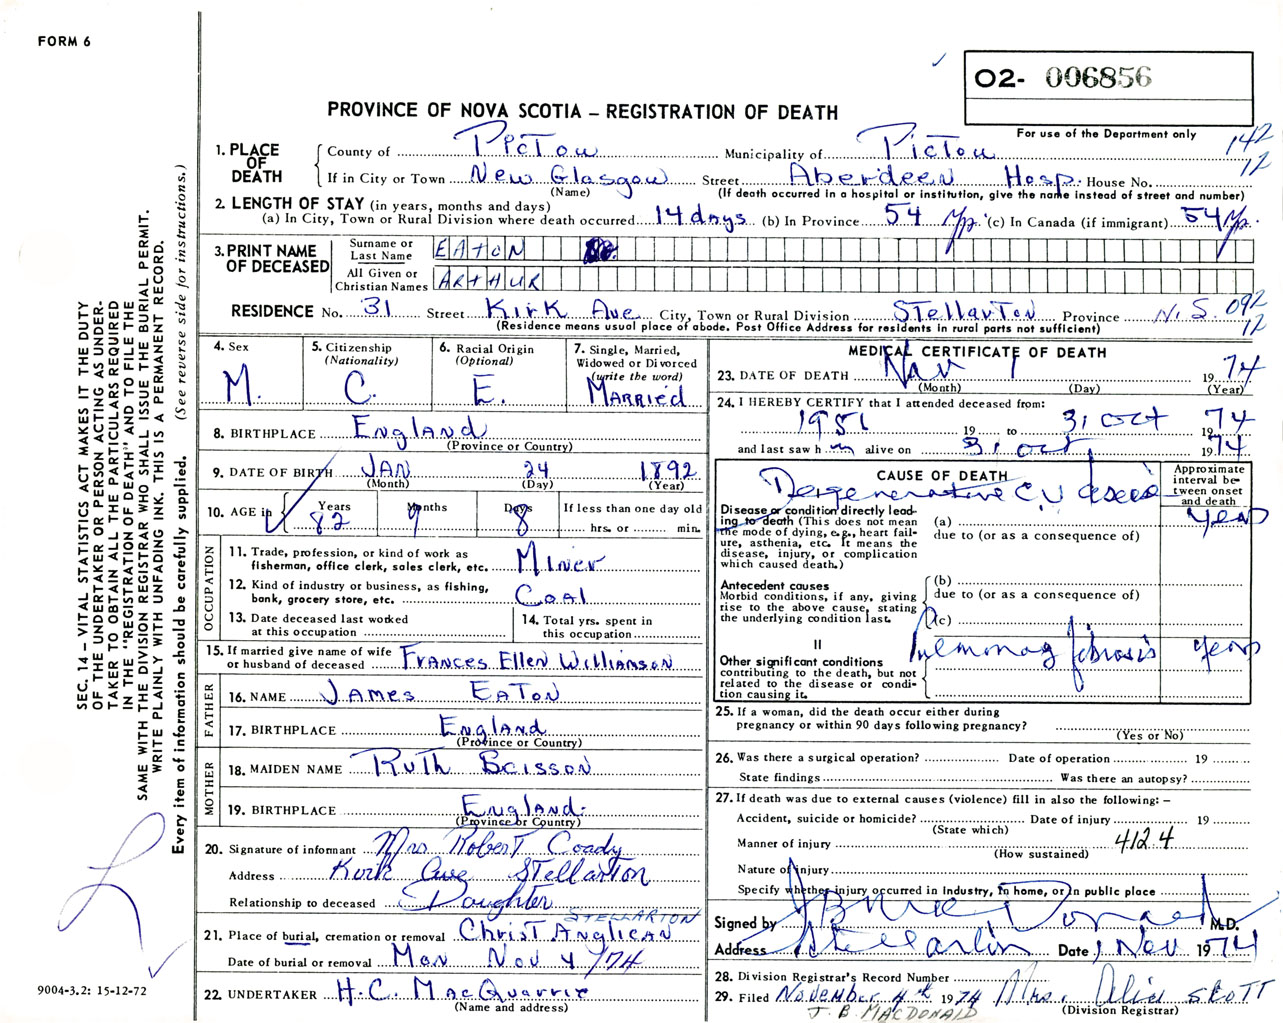 FORM 6
O2- 006856
PROVINCE OF NOVA SCOTIA – REGISTRATION OF DEATH
For use of the Department only
142
12
1. PLACE OF DEATH
County of Pictou Municipality of Pictou
If in City or Town New Glasgow Street Aberdeen Hosp. House No.
(Name) (If death occurred in a hospital or institution, give the name instead of street and number)
2. LENGTH OF STAY (in years, months and days)
(a) In City, Town or Rural Division where death occurred 14 days (b) In Province 54 yr. (c) In Canada (if immigrant) 54 yr.
3. PRINT NAME OF DECEASED
Surname or Last Name EATON
All Given or Christian Names ARTHUR
RESIDENCE No. 31 Street Kirk Ave City, Town or Rural Division Stellarton Province N.S. 092
12
(Residence means usual place of abode. Post Office Address for residents in rural parts not sufficient)
4. Sex
M.
5. Citizenship
(Nationality)
C.
6. Racial Origin
(Optional)
E.
7. Single, Married, Widowed or Divorced
(write the word)
Married
8. BIRTHPLACE England
(Province or Country)
9. DATE OF BIRTH JAN 24 1892
(Month) (Day) (Year)
10. AGE in Years Months Days If less than one day old
82 9 8 hrs. or min.
OCCUPATION
11. Trade, profession, or kind of work as
fisherman, office clerk, sales clerk, etc. Miner
12. Kind of industry or business, as fishing,
bank, grocery store, etc. Coal
13. Date deceased last worked
at this occupation
14. Total yrs. spent in
this occupation
15. If married give name of wife
or husband of deceased Frances Ellen Williamson
FATHER
16. NAME James Eaton
17. BIRTHPLACE England
(Province or Country)
MOTHER
18. MAIDEN NAME Ruth
19. BIRTHPLACE England
(Province or Country)
20. Signature of informant Mrs Robert Coady
Address Kirk Ave Stellarton
Relationship to deceased Daughter
STELLARTON
21. Place of burial, cremation or removal Christ Anglican
Date of burial or removal Mon Nov 4/74
22. UNDERTAKER H.C. MacQuarrie
(Name and address)
MEDICAL CERTIFICATE OF DEATH
23. DATE OF DEATH Nov 1 1974
(Month) (Day) (Year)
24. I HEREBY CERTIFY that I attended deceased from:
1951 19 to 31 Oct 1974
and last saw h im alive on 31 Oct 1974
CAUSE OF DEATH
Approximate interval between onset and death
Degenerative C.V disease
Disease or condition directly leading to death (This does not mean the mode of dying, e.g., heart failure, asthenia, etc. It means the disease, injury, or complication which caused death.)
(a) years
due to (or as a consequence of)
Antecedent causes
Morbid conditions, if any, giving rise to the above cause, stating the underlying condition last.
(b)
due to (or as a consequence of)
(c)
II
Pulmonary fibrosis years
Other significant conditions
contributing to the death, but not related to the disease or condition causing it.
25. If a woman, did the death occur either during
pregnancy or within 90 days following pregnancy?
(Yes or No)
26. Was there a surgical operation? Date of operation 19
State findings Was there an autopsy?
27. If death was due to external causes (violence) fill in also the following: –
Accident, suicide or homicide? Date of injury 19
(State which)
Manner of injury 412.4
(How sustained)
Nature of injury
Specify whether injury occurred in Industry, in home, or in public place
Signed by M.D.
Address Stellarton Date 1 Nov 1974
28. Division Registrar's Record Number
29. Filed November 4th 1974 Mrs. Scott
J. B. MACDONALD (Division Registrar)
SEC. 14 – VITAL STATISTICS ACT MAKES IT THE DUTY
OF THE UNDERTAKER OR PERSON ACTING AS UNDER-
TAKER TO OBTAIN ALL THE PARTICULARS REQUIRED
IN THE "REGISTRATION OF DEATH" AND TO FILE THE
SAME WITH THE DIVISION REGISTRAR WHO SHALL ISSUE THE BURIAL PERMIT.
WRITE PLAINLY WITH UNFADING INK. THIS IS A PERMANENT RECORD.
Every item of information should be carefully supplied. (See reverse side for instructions.)
9004-3.2: 15-12-72